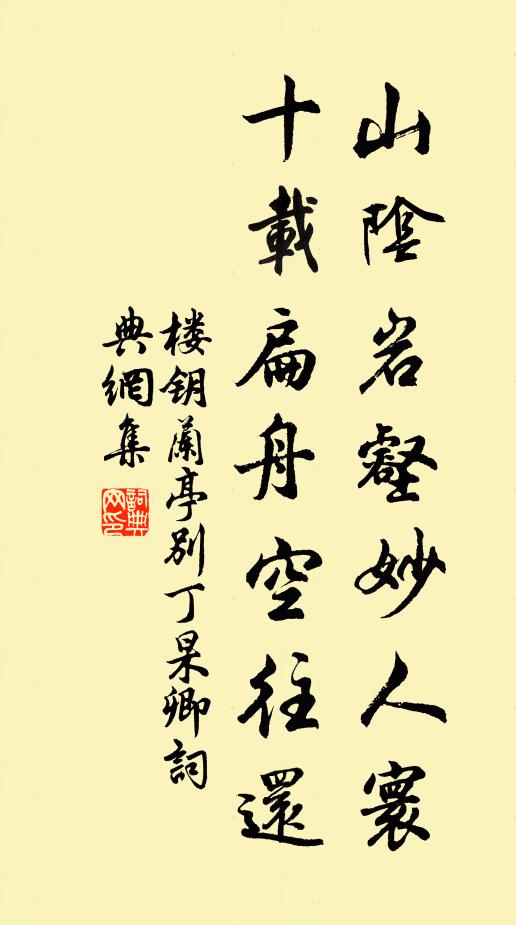 山陰岩壑妙人寰
十載扁舟空往還
楼钥蘭亭别丁杲卿詞
典網集
詞典
网印